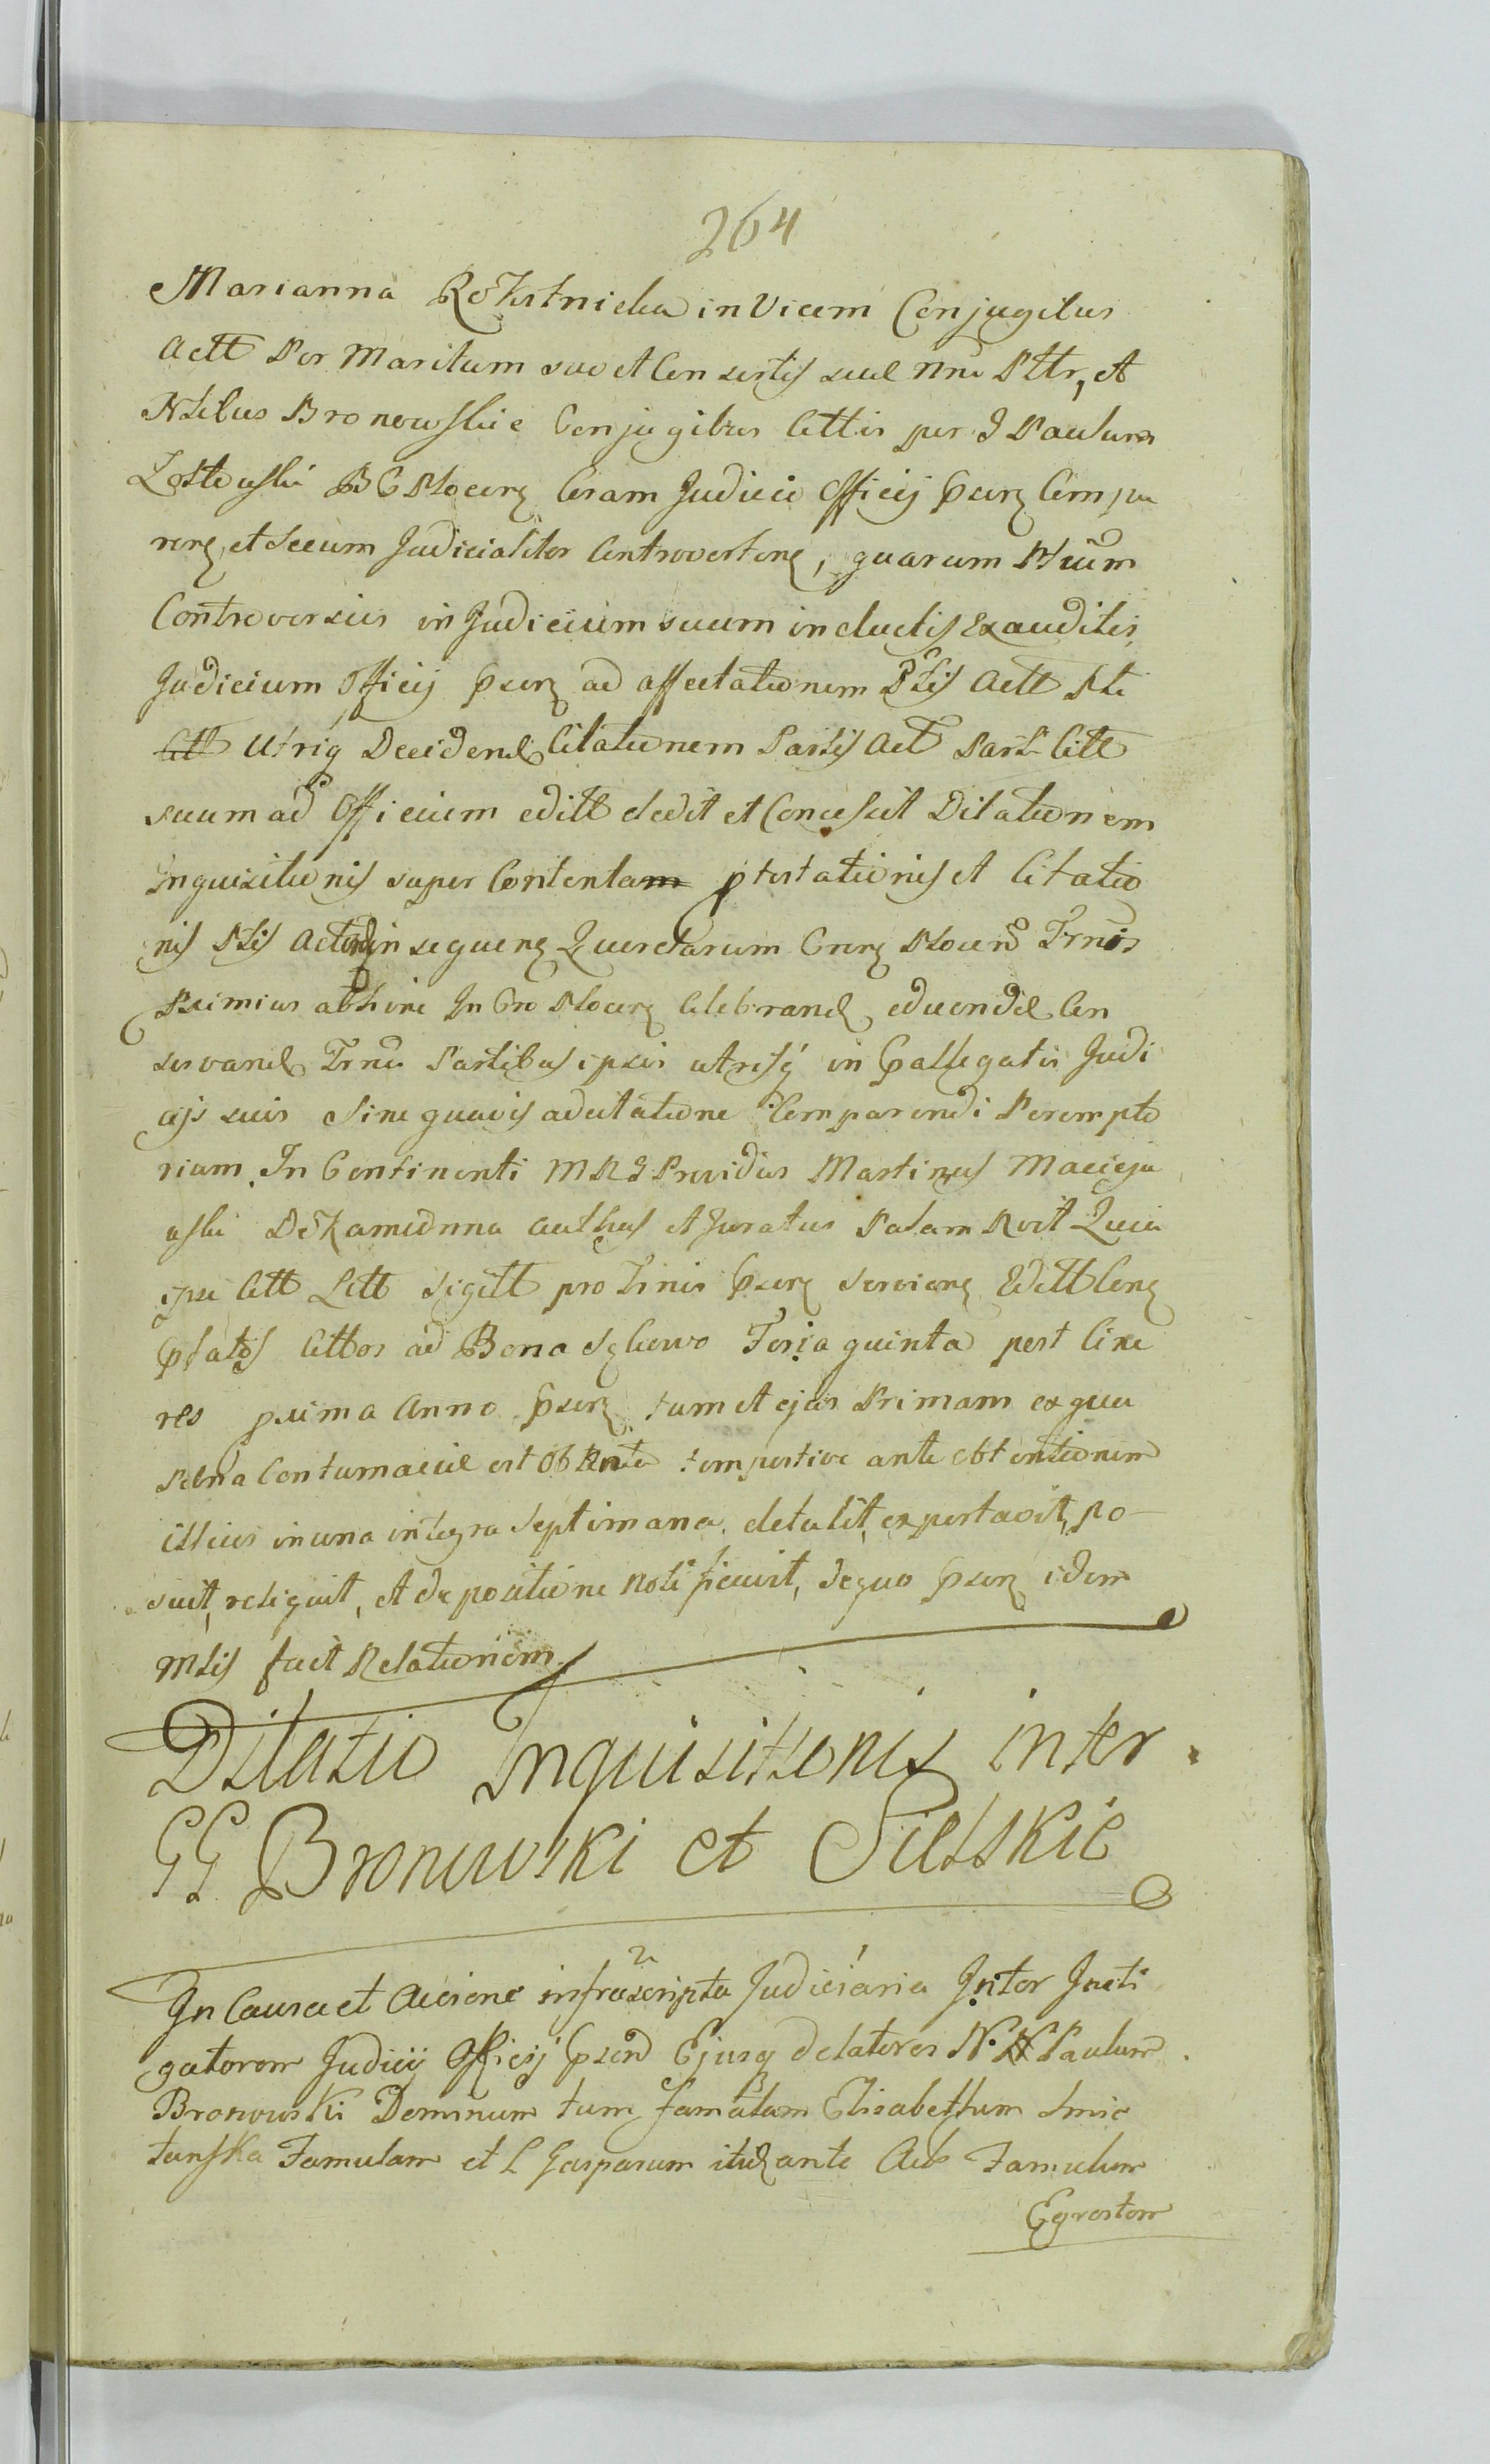 264
Marianna Rokitnicka in Vicem Conjugibus
Actt Per Maritum suo et Consortis suae Nne Pttr, et
Nbilus Bronowskie Conjugibus Cttis per G Paulum
Zottowski BG Plocen Coram Judicio Officij Psen Compa
ren et Secum Judicialiter Controverten, quarum Ptium
Controversiis in Judicium suum inductis Exauditis,
Judicium Officij Psen ad affectationem Ptis Actt Pti
Ctt Utriq Decidend Citationem Partis Act Parti Citt
suum ad Officium editt dedit et Concessit Dilationem
Inquisitionis super Contentam ptestationis et Citatio
nis Ptis Actor in sequen Querelarum Gnen Plocen Trnis
Primius abhinc In Cro Plocen Celebrand, educendae Con
servand Trnu Partibus ipsis utrisq in Pallegatis Judi
cijs suis Sine quavis adcitatione Comparendi Perempto
rium. In Continenti MRG Providus Martinus Macieja
wski De Kamionna authus et Juratus Palam Rvit Quia
ipse Citt Litt Sigitt pro Trnis Psen Servien Editt Cong
pfatos Cittos ad Bona Sękowo Feria quinta post Cine
res pxima Anno Psen tum et ejus Primam ex qua
Paena Contumaciae est Obtenta tempestive ante obtentionem
illius in una integra Septimana, detulit, exportavit, po-
suit, reliquit, et de positione notificavit, de quo Psen idem
Mlis facit Relationem
Dilatio Inquisitionis inter
GG Bronowski et Sielskie
In Causa et Accione infrascripta Judiciaria Inter Insti
gatorem Judicij Officij Psen Ejusq delatores N. N Paulum
Bronowski Dominum tum famatam Elisabetham Smie
tanska Famulam et L Gasparum itidante Act Famulum
Egrestem